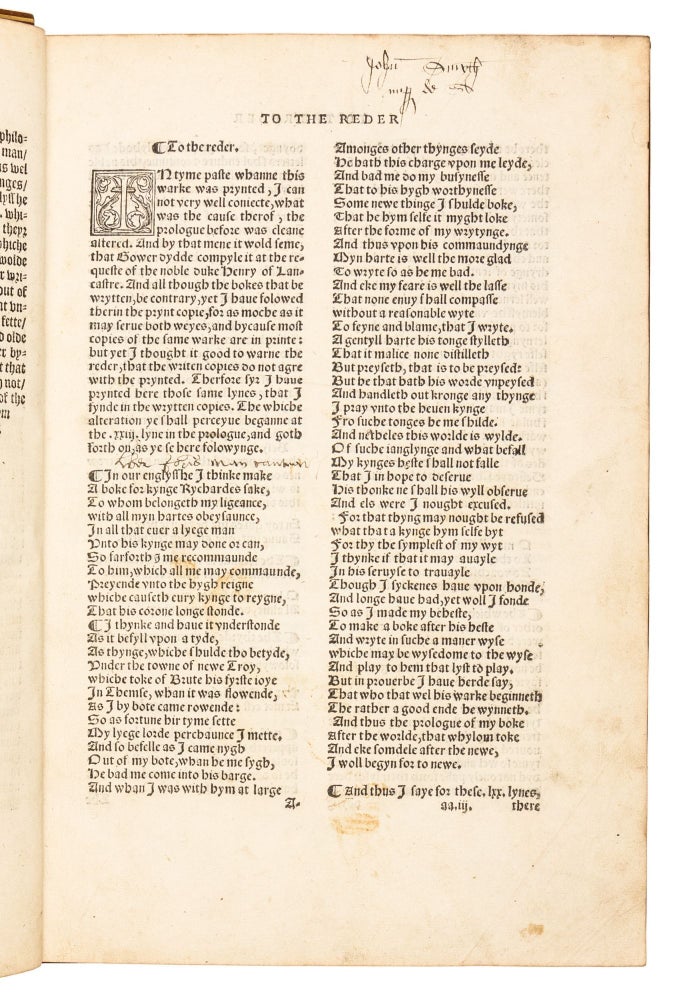 philo=
man/
is wel
nges/
. whi-
they2
whiche
wolde
out of
at vn-
fette/
d olde
t that
not/
of the
John Smyth
TO THE REDER
¶ To the reder.
IN tyme paste whanne this
warke was prynted, I can
not very well coniecte, what
was the cause therof, the
prologue before was cleane
altered. And by that mene it wold seme,
that Gower dydde compyle it at the re-
queste of the noble duke Henry of Lan-
castre. And all though the bokes that be
wrytten, be contrary, yet I haue folowed
therin the prynt copie, for as moche as it
may serue both weyes, and bycause most
copies of the same warke are in printe:
but yet I thought it good to warne the
reder, that the writen copies do not agre
with the prynted. Therfore syr I haue
prynted here those same lynes, that I
fynde in the wrytten copies. The whiche
alteration ye shall perceyue beganne at
the .xxiij. lyne in the prologue, and goth
forth on, as ye se here folowynge.
¶ In our englysshe I thinke make
A boke for kynge Rychardes sake,
To whom belongeth my ligeance,
with all myn hartes obeysaunce,
In all that euer a lyege man
Vnto his kynge may done or can,
So farforth I me recommaunde
To him, which all me may commaunde,
Preyende vnto the hygh reigne
whiche causeth eury kynge to reygne,
That his corone longe stonde.
¶ I thynke and haue it vnderstonde
As it befyll vpon a tyde,
As thynge, whiche shulde tho betyde,
Vnder the towne of newe Troy,
whiche toke of Brute his fyrste ioye
In Themse, whan it was flowende,
As I by bote came rowende:
So as fortune hir tyme sette
My lyege lorde perchaunce I mette.
And so befelle as I came nygh
Out of my bote, whan he me sygh,
He bad me come into his barge.
And whan I was with hym at large
A-
Amonges other thynges seyde
He hath this charge vpon me leyde,
And bad me do my busynesse
That to his hygh worthynesse
Some newe thinge I shulde boke,
That he hym selfe it myght loke
After the forme of my wrytynge.
And thus vpon his commaundynge
Myn harte is well the more glad
To wryte so as he me bad.
And eke my feare is well the lasse
That none enuy shall compasse
without a reasonable wyte
To feyne and blame, that I wryte.
A gentyll harte his tonge stylleth
That it malice none distilleth
But preyseth, that is to be preysed:
But he that hath his worde vnpeysed
And handleth out kronge any thynge
I pray vnto the heuen kynge
Fro suche tonges he me shilde.
And netheles this worlde is wylde.
Of suche ianglynge and what befall
My kynges heste shall not falle
That I in hope to deserue
His thonke ne shall his wyll obserue
And els were I nought excused.
For that thyng may nought be refused
what that a kynge hym selfe byt
For thy the symplest of my wyt
I thynke if that it may auayle
In his seruyse to trauayle
Though I syckenes haue vpon honde,
And longe haue had, yet woll I fonde
So as I made my beheste,
To make a boke after his heste
And wryte in suche a maner wyse
whiche may be wysedome to the wyse
And play to hem that lyst to play.
But in prouerbe I haue herde say,
That who that wel his warke beginneth
The rather a good ende he wynneth.
And thus the prologue of my boke
After the worlde, that whylom toke
And eke somdele after the newe,
I woll begyn for to newe.
¶ And thus I saye for these. lxx. lynes,
aa.iij. there